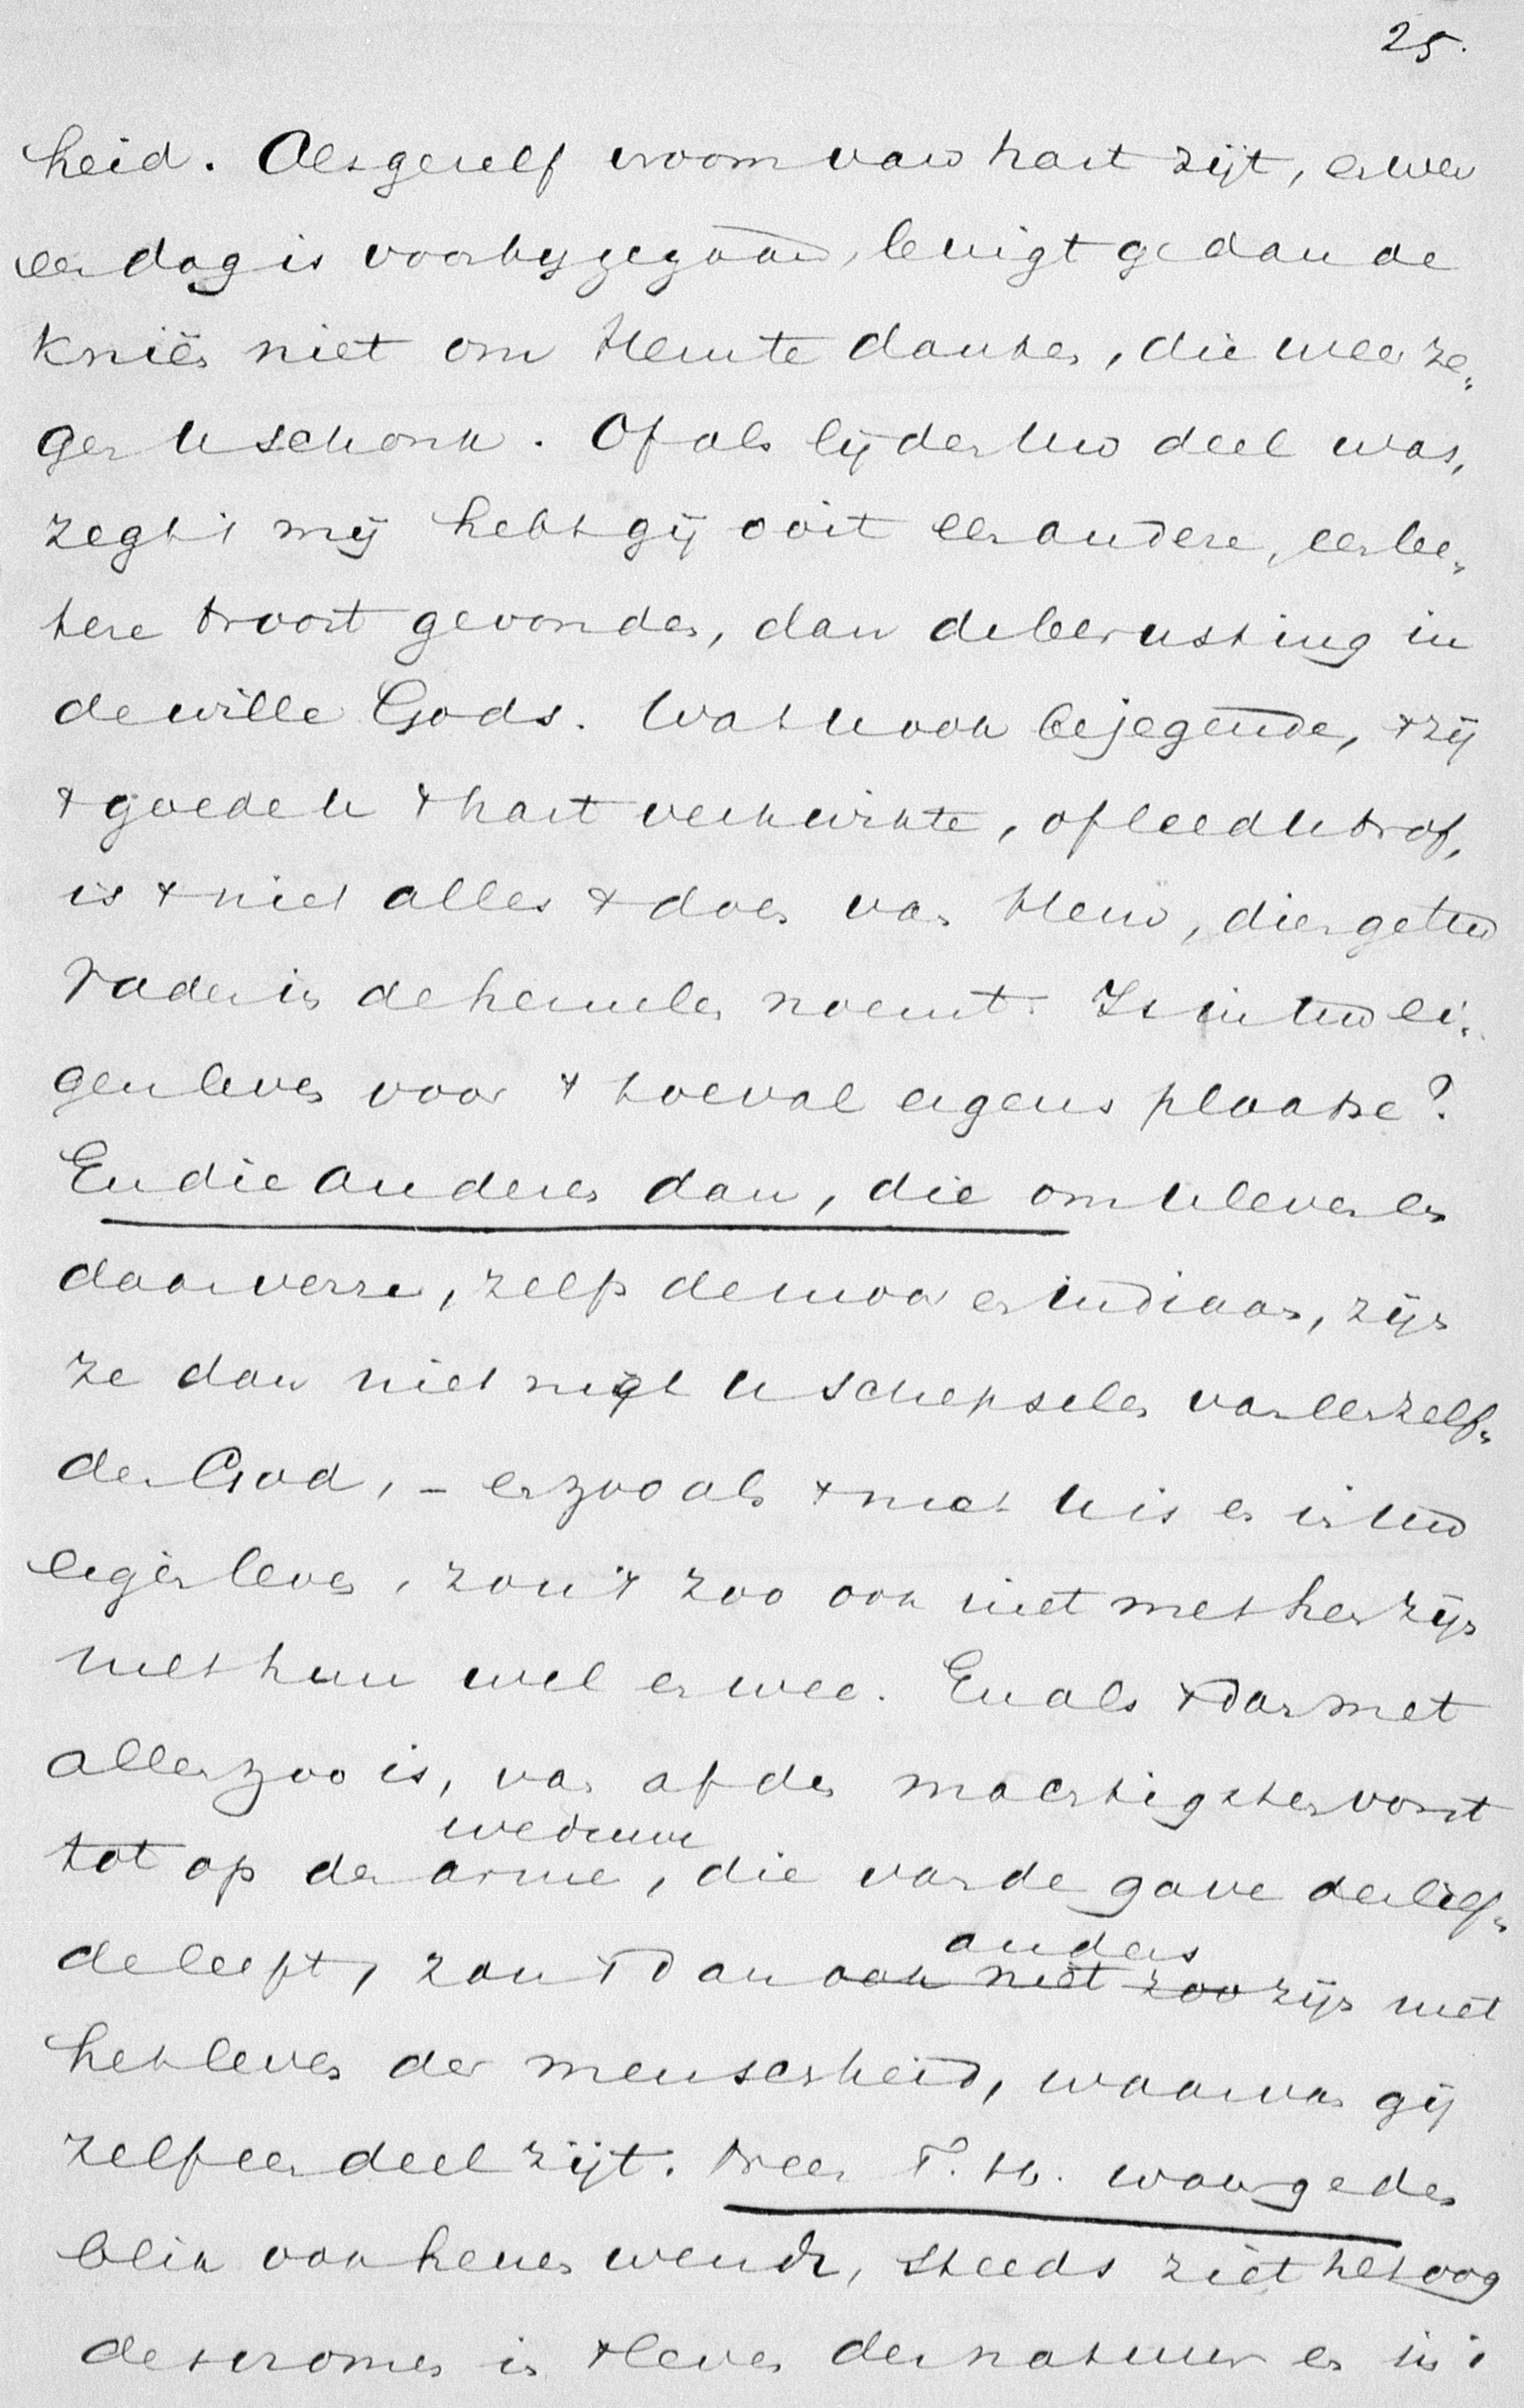 25.
heid. Als ge zelf vroom van hart zijt, en er weer
een dag is voorbijgegaan, buigt ge dan de
knieën niet om Hem te danken, die weer ze„
gen U schonk. Of als lijden Uw deel was,
zegt 't mij hebt gij ooit een andere, een be„
tere troost gevonden, dan de berusting in
de wille Gods. Wat U ook bejegende, 't zij
't goede U 't hart verkwikte, of leed U trof,
is 't niet alles 't doen van Hem, dien ge Uw
Vader in de hemelen noemt. Is in Uw ei„
gen leven voor 't toeval ergens plaatse?
En die anderen dan, die om U leven en
daar verre, zelfs de moor en indiaan, zijn
ze dan niet met U schepselen van eenzelf„
den God, – en zooals 't met U is en in Uw
eigen leven, zou 't zoo ook niet met hen zijn
met hun wel en wee. En als 't dan met
allen zoo is, van af den machtigsten vorst
tot op de arme weduwe, die van de gave der lief„
de leeft, zou 't dan ook niet zoo anders zijn met
het leven der menschheid, waarvan gij
zelf een deel zijt. Neen T. H. waar ge den
blik ook henen wendt, steeds ziet het oog
des vromen in 't leven der natuur en in 't